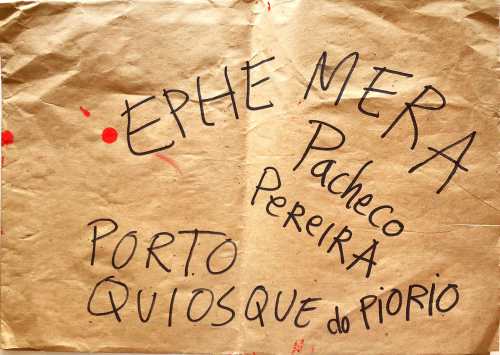 EPHEMERA
Pacheco
PEREIRA
PORTO
QUIOSQUE do PiORiO